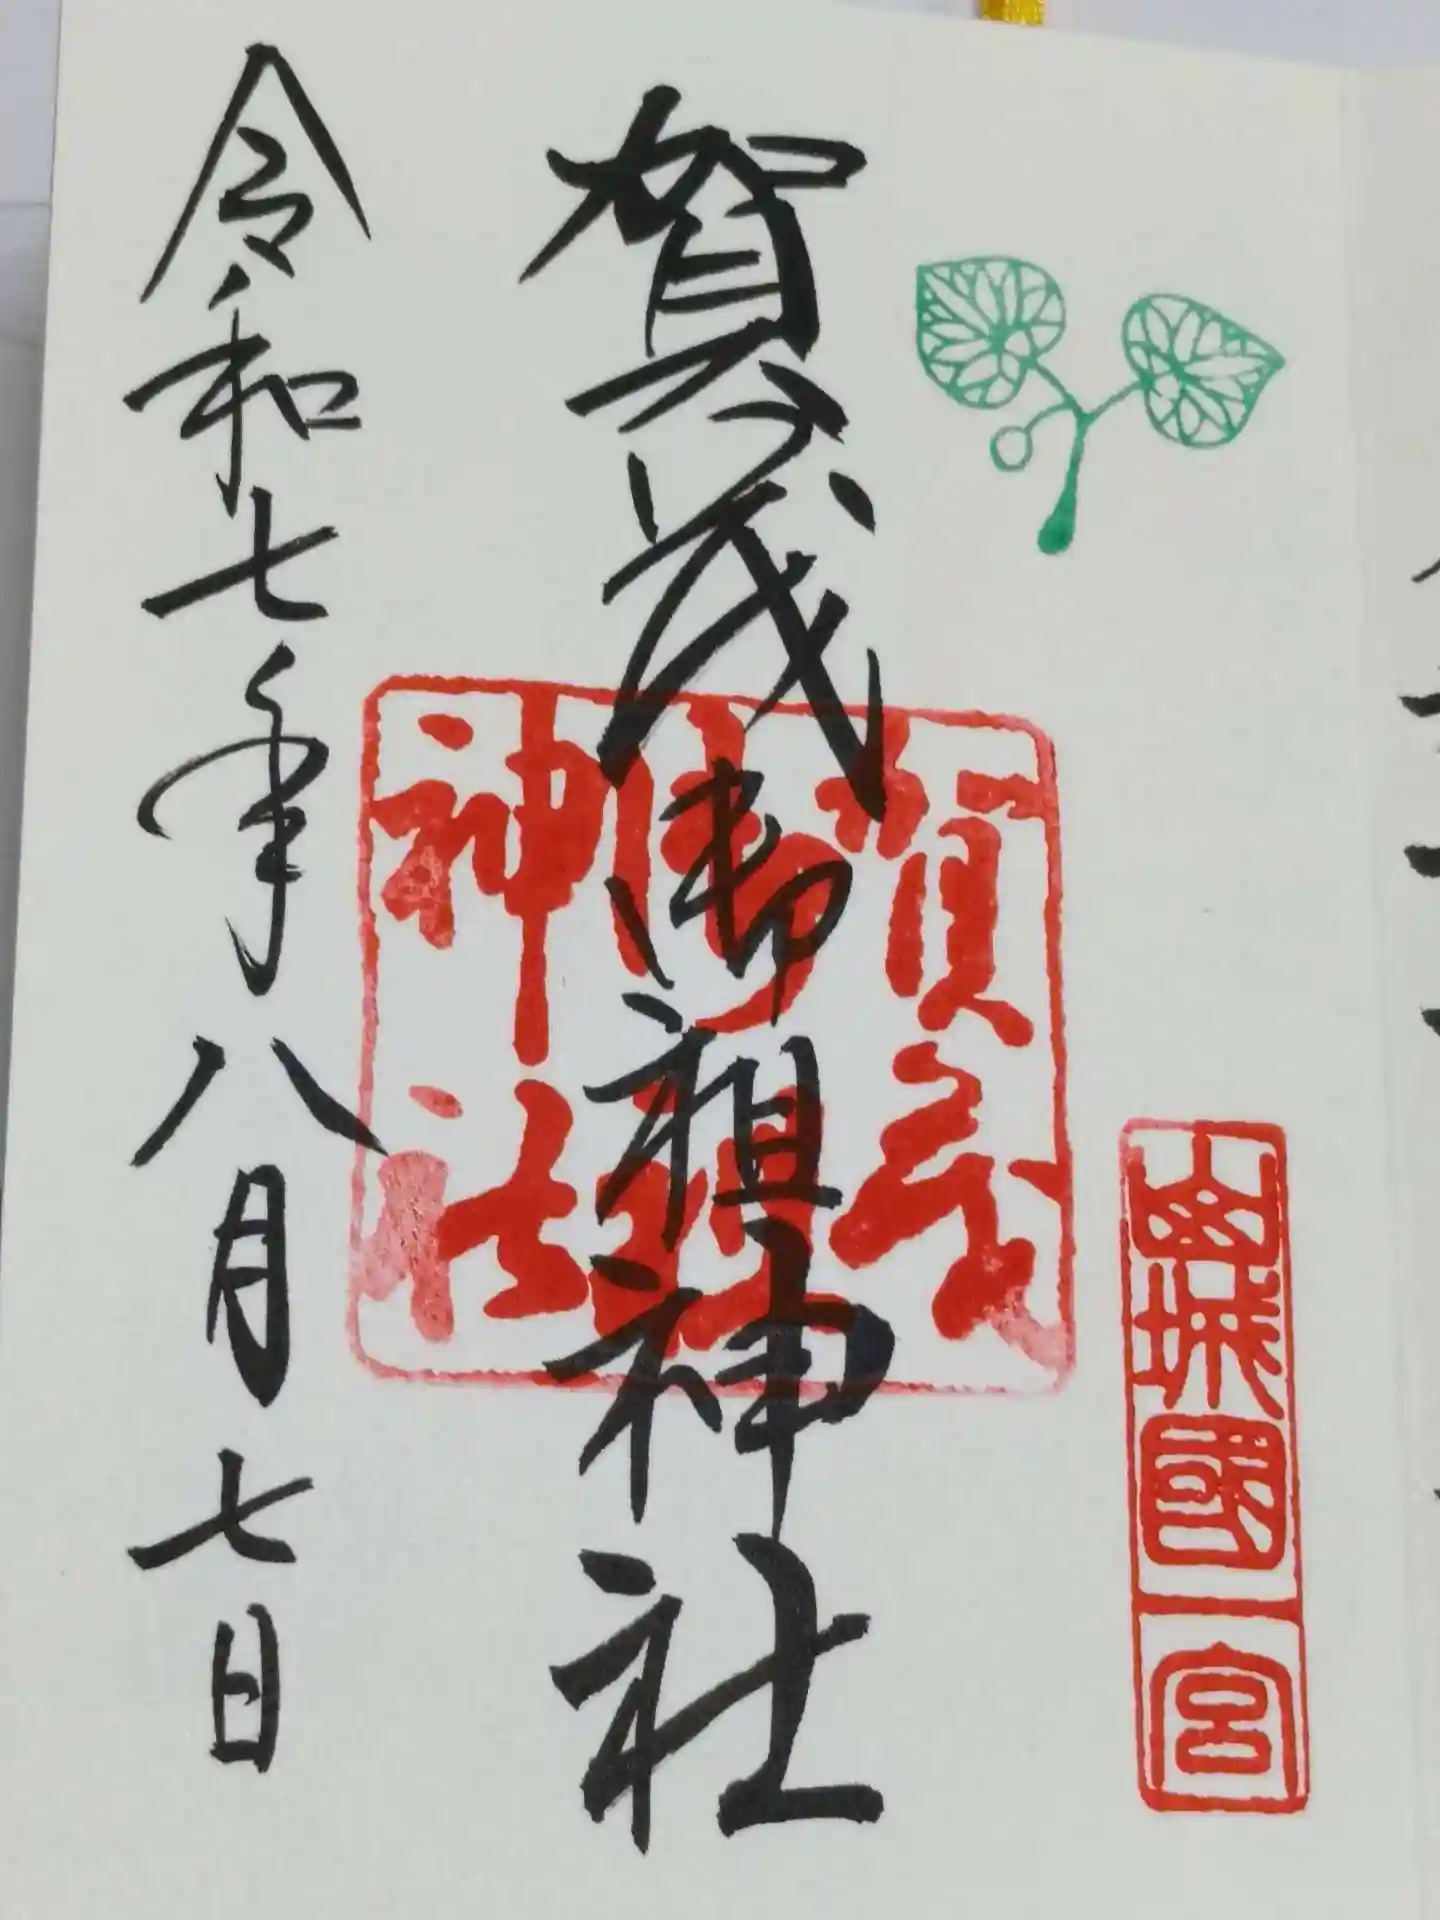 山城國一宮
賀茂御祖神社
賀茂
御祖
神社
令和七年八月七日